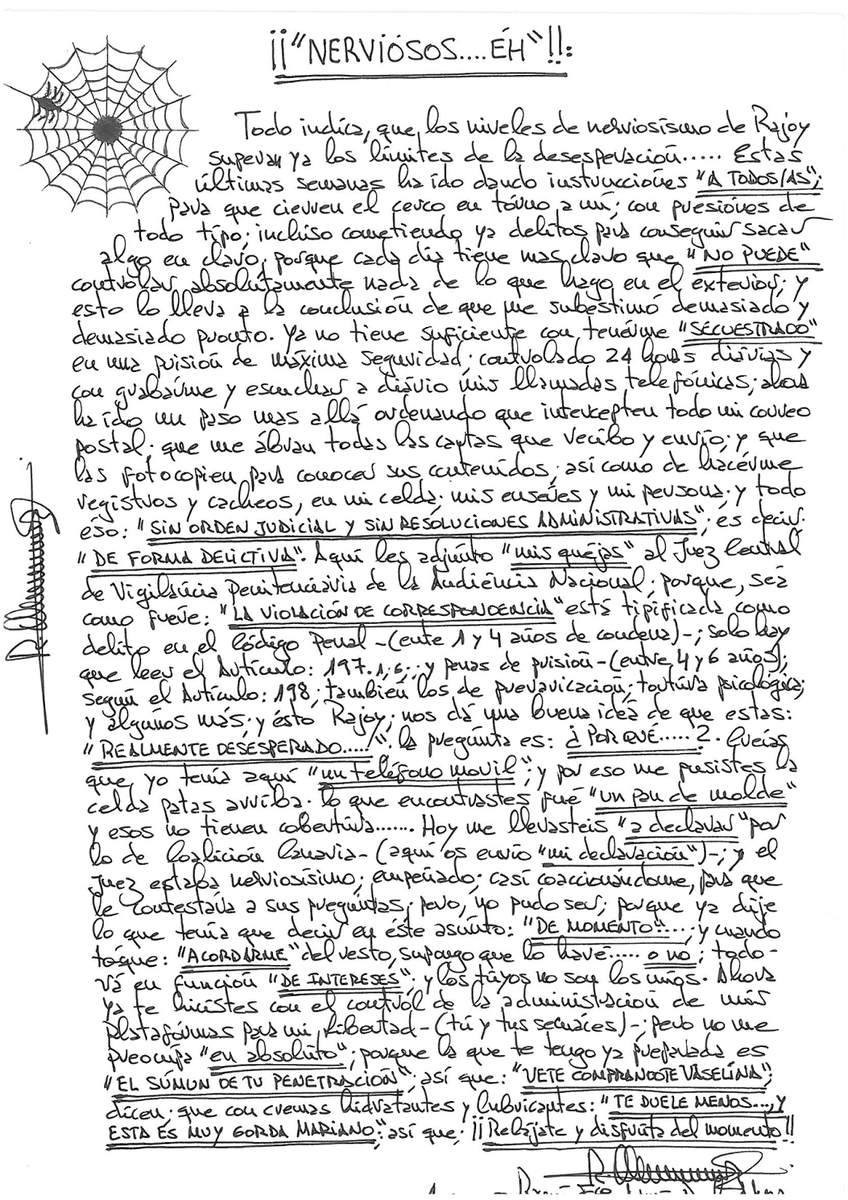 ¡¡"NERVIÓSOS....ÉH"!!:
Todo indíca, que los niveles de nerviosísmo de Rajoy
superan ya los límites de la desesperacíon..... Estas
últimas semanas ha ído dando instruccíones "A TODOS/AS";
para que cierren el cerco en tórno a mí; con presíones de
todo tipo; incluso cometiendo ya delítos para conseguir sacar
algo en claro, porque cada día tiene mas claro que "NO PUEDE"
controlar absolutamente nada de lo que hago en el exteríor; y
esto lo lleva a la conclusíon de que me subestimó demasiado y
demasiado pronto. Ya no tiene suficiente con tenérme "SECUESTRADO"
en una prisíon de máxima seguridad; controlado 24 horas diárias y
con grabárme y escuchar a diário mis llamadas telefónicas; ahora
ha ído un paso mas allá ordenando que intercepten todo mi correo
postal; que me ábran todas las cartas que recibo y envío; y que
las fotocopíen para conocer sus contenidos; así como de hacérme
registros y cacheos, en mi celda; mis enseres y mi persona; y todo
eso: "SIN ORDEN JUDICIAL Y SIN RESOLUCIONES ADMINISTRATIVAS"; és decir:
"DE FORMA DELICTIVA". Aquí les adjúnto "mis quéjas" al Juez Central
de Vigiláncia Penitenciaria de la Audiéncia Nacional; porque, sea
como fuere: "LA VIOLACIÓN DE CORRESPONDENCIA" está tipificada como
delito en el Código Penal -(ente 1 y 4 años de condena)-; solo hay
que leer el Artículo: 197.1,6.; y penas de prisíon -(entre 4 y 6 años);
según el Artículo: 198; tambíen los de prevaricacíon; tortúra psicológica;
y algúnos más; y ésto Rajoy; nos dá una buena idéa de que estas:
"REALMENTE DESESPERADO....". la pregúnta es: ¿POR QUÉ.....?. Creías
que, yo tenía aquí "un teléfono movil"; y por eso me pusistes la
celda patas arriba. lo que encontrastes fué "un pan de molde"
y esos no tienen cobertúra....... Hoy me llevasteis "a declarar" por
lo de Coalicíon Canaria -(aquí os envío "mi declaracíon")-; y el
Juez estaba nerviosísimo; empeñado; casí coaccionándome, para que
le contestara a sus pregúntas; pero, no pudo ser; porque ya dije
lo que tenía que decir en éste asunto: "DE MOMENTO"....; y cuando
tóque: "ACORDARME" del resto, supongo que lo haré..... o no; todo-
rá en funcíon "DE INTERESES"; y los túyos no son los míos. Ahora
ya te hicístes con el contról de la administracíon de mis
platafórmas para mi libertad -(tú y tus secuáces)-; pero no me
preocúpa "en absolúto"; porque la que te tengo ya preparada es
"EL SÚMUN DE TU PENETRACIÓN"; así que: "VETE COMPRANDOTE VASELINA";
dicen; que con cremas hidratantes y lubricantes: "TE DUELE MENOS..., Y
ESTA ÉS MUY GORDA MARIANO"; así que; ¡¡Relájate y disfrúta del momento!!